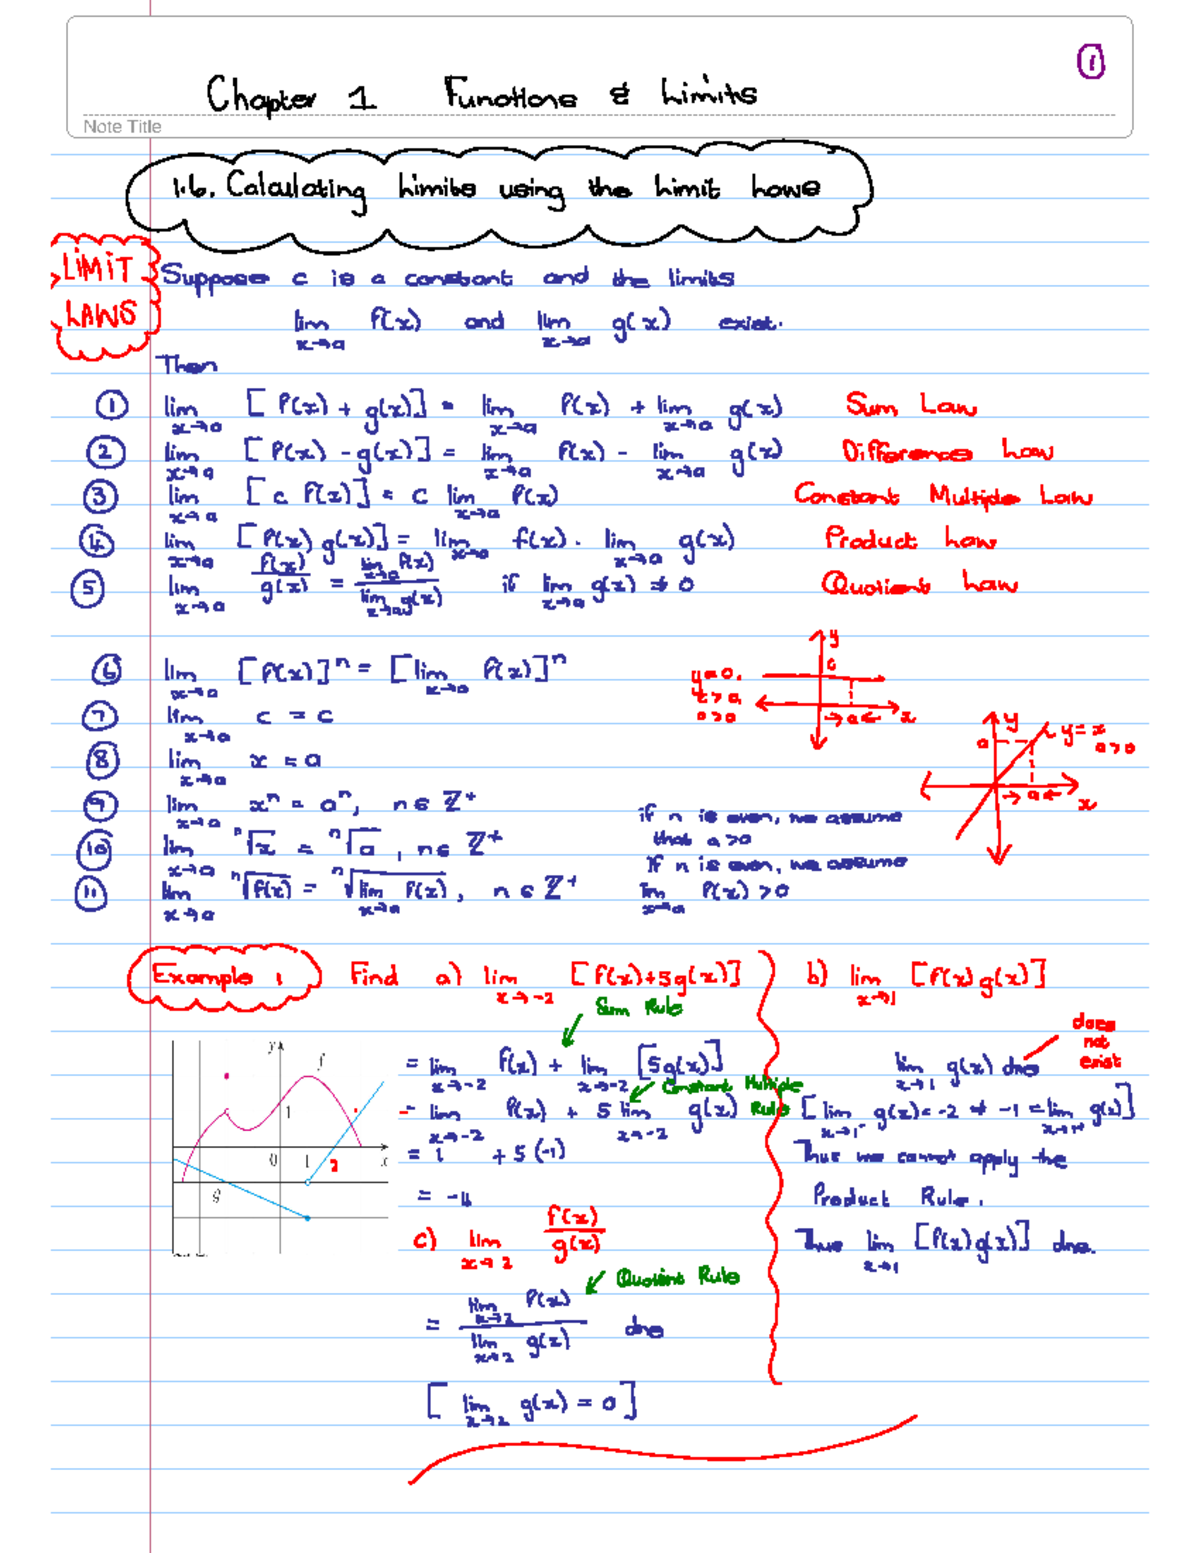 ①
Chapter 1 Functions & Limits
Note Title
1.6. Calculating Limits using the Limit Laws
LIMIT LAWS
Suppose c is a constant and the limits
lim x→a f(x) and lim x→a g(x) exist.
Then
① lim x→a [f(x) + g(x)] = lim x→a f(x) + lim x→a g(x) Sum Law
② lim x→a [f(x) - g(x)] = lim x→a f(x) - lim x→a g(x) Difference Law
③ lim x→a [c f(x)] = c lim x→a f(x) Constant Multiple Law
④ lim x→a [f(x) g(x)] = lim x→a f(x) . lim x→a g(x) Product Law
⑤ lim x→a f(x)/g(x) = lim x→a f(x) / lim x→a g(x) if lim x→a g(x) ≠ 0 Quotient Law
⑥ lim x→a [f(x)]^n = [lim x→a f(x)]^n
⑦ lim x→a c = c
⑧ lim x→a x = a
y
c
→a← x
y
a
y = x
a>0
→a← x
⑨ lim x→a x^n = a^n, n ∈ Z^+
if n is even, we assume
that a>0
⑩ lim x→a ^n√x = ^n√a, n ∈ Z^+
If n is even, we assume
⑪ lim x→a ^n√f(x) = ^n√lim x→a f(x), n ∈ Z^+ lim x→a f(x) > 0
Example 1 Find a) lim x→-2 [f(x)+5g(x)] b) lim x→1 [f(x)g(x)]
Sum Rule
= lim x→-2 f(x) + lim x→-2 [5g(x)]
Constant Multiple Rule
= lim x→-2 f(x) + 5 lim x→-2 g(x)
= 1 + 5(-1)
= -4
does not exist
lim x→1 g(x) dne
[lim x→1^- g(x) = -2 ≠ -1 = lim x→1^+ g(x)]
Thus we cannot apply the
Product Rule.
Thus lim x→1 [f(x)g(x)] dne.
y f
1
0 1 2 x
g
c) lim x→2 f(x)/g(x)
Quotient Rule
= lim x→2 f(x) / lim x→2 g(x) dne
[lim x→2 g(x) = 0]